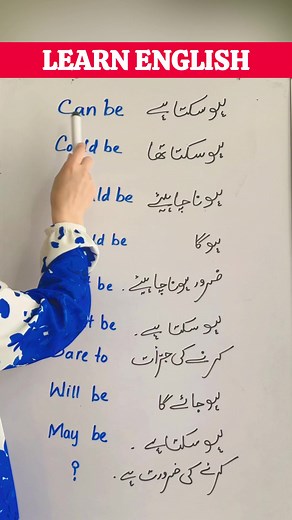 LEARN ENGLISH
Can be ہو سکتا ہے
Could be ہو سکتا تھا
be ہونا چاہیئے
be ہوگا
be ضرور ہونا چاہیئے۔
be ہو سکتا ہے۔
Dare to کرنے کی جرأت
Will be ہو جائے گا
May be ہو سکتا ہے۔
? کرنے کی ضرورت ہے۔